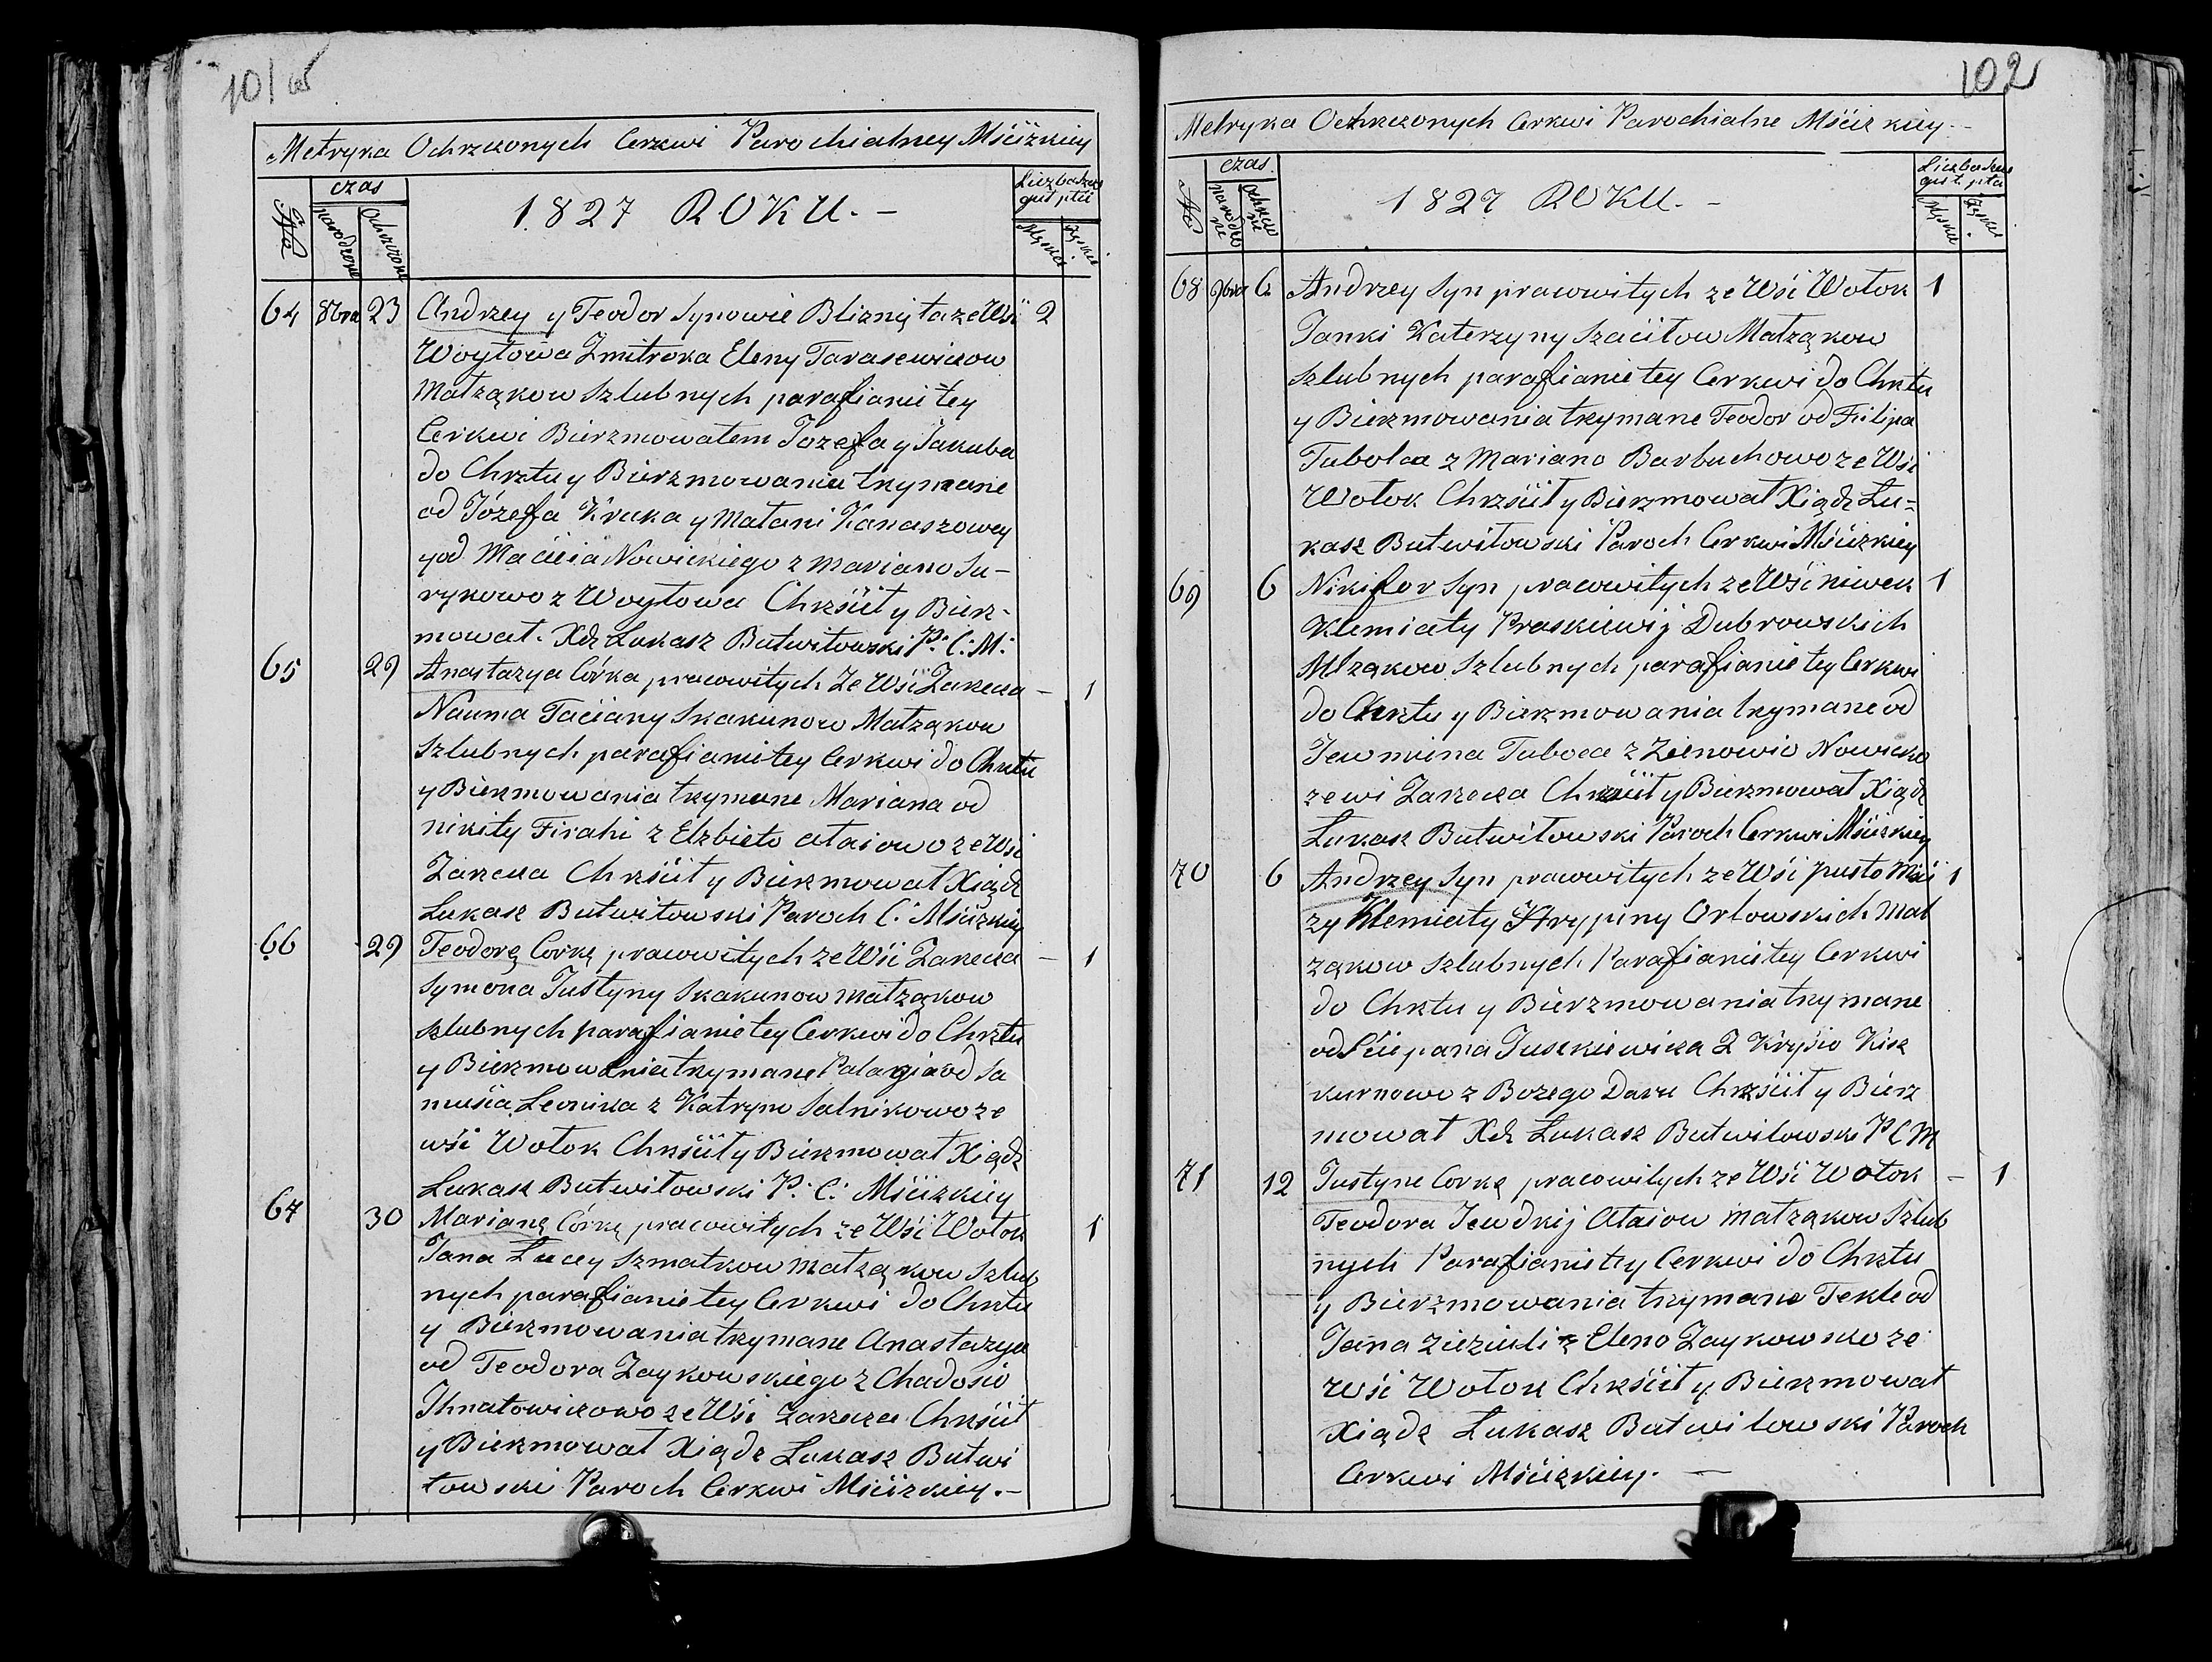 101
Metryka Ochrzczonych Cerkwi Parochialney Mścizkiey
czas
Liczba szcze
gul płci
No
narodzone
Ochrzczone
1827 ROKU. -
Męzkiei
Zęskiei
64 8bra 23 Andrzey y Teodor Synowie Bliznięta ze Wsi 2
Woytowa Zmitroka Eleny Tarasewiczow
Małząkow szlubnych parafianie tey
Cerkwi Bierzmowałem Jozefa y Jakuba
do Chrztu y Bierzmowania trzymane
od Józefa Kruka y Matani Kanaszowey
y od Macieia Nowickiego z Mariano Su-
rykowo z Woytowa Chrzsćił y Bierz-
mowat. Xdz Łukasz Butwiłowski P: C: M:
65 29 Anastazya Córka pracowitych Ze Wsi Zarecza - 1
Nauma Taciany Skakunow Małząkow
szlubnych parafianie tey Cerkwi do Chrztu
y Bierzmowania trzymane Mariana od
nikity Firahi z Elzbieto Ataiowo ze Wsi
Zarecza Chrzsćił y Bierzmował Xiądz
Łukasz Butwiłowski Paroch C: Mścizkiey
66 29 Teodorę Corkę pracowitych ze Wsi Zarecza - 1
Symona Justyny Skakunow małząkow
szlubnych parafianie tey Cerkwi do Chrztu
y Bierzmowania trzymane Palagia od Sa
musia Leonika z Katryno Salnikowo ze
wśi Wołok Chrzsćił y Bierzmował Xiądz
Łukasz Butwiłowski P: C: Mścizkiey
67 30 Marianę Córkę pracowitych ze Wśi Wołok 1
Jana Łucey Szmatkow małząkow szlub
nych parafianie tey Cerkwi do Chrztu
y Bierzmowania trzymane Anastazya
od Teodora Zaykowskiego z Chadosio
Ihnatowiczowo ze Wśi zarecza Chrzsćił
y Bierzmował Xiądz Łukasz Butwi
łowski Paroch Cerkwi Mścizkiey. -
102
Metryka Ochrzczonych Cerkwi Parochialne Mścizkiey -
czas.
Liczba szcze
guł. płci
No
narodzo
ne
Ochrzczo
ne
1827 ROKU. -
Męzkiei
Zęskiei
68 9bra 6. Andrzey Syn pracowitych ze Wśi Wołok 1
Janki Katerzyny Szaciłow Małząkow
szlubnych parafianie tey Cerkwi do Chrztu
y Bierzmowania trzymane Teodor od Filipa
Tubolca z Mariano Barbuchowo ze Wśi
Wołok Chrzsćił y Bierzmował Xiądz Łu-
kasz Butwiłowski Paroch Cerkwi Mścizkiey
69 6 Nikifor Syn pracowitych ze Wśi niwek 1
Klemiaty Praskiewij Dubrowskich
Młząkow szlubnych parafianie tey Cerkwi
do Chrztu y Bierzmowania trzymane od
z Zienowio Nowicko
ze wi Zarzecza Chrzsćił y Bierzmował Xiądz
Łukasz Butwiłowski Paroch Cerkwi Mścizkiey
70 6 Andrzey Syn pracowitych ze Wśi pusto Mści 1
zy Klemiaty Hrypiny Orłowskich Mał
ząkow szlubnych Parafianie tey Cerkwi
do Chrztu y Bierzmowania trzymane
od Sciepana Juszkiewicza Z Krysio Kisz
kurnowo z Bozego Daru Chrzsćił y Bierz
mował Xdz Łukasz Butwiłowski P C M
71 12 Justyne Corkę pracowitych ze Wśi Wołok - 1
Teodora Jewdkij Ataiow małząkow Szlub
nych Parafianie tey Cerkwi do Chrztu
y Bierzmowania trzymane Tekle od
Jana Zieziuli z Eleno Zaykowsko ze
Wśi Wołok Chrzsćił y Bierzmował
Xiądz Łukasz Butwiłowski Paroch
Cerkwi Mścizkiey. -